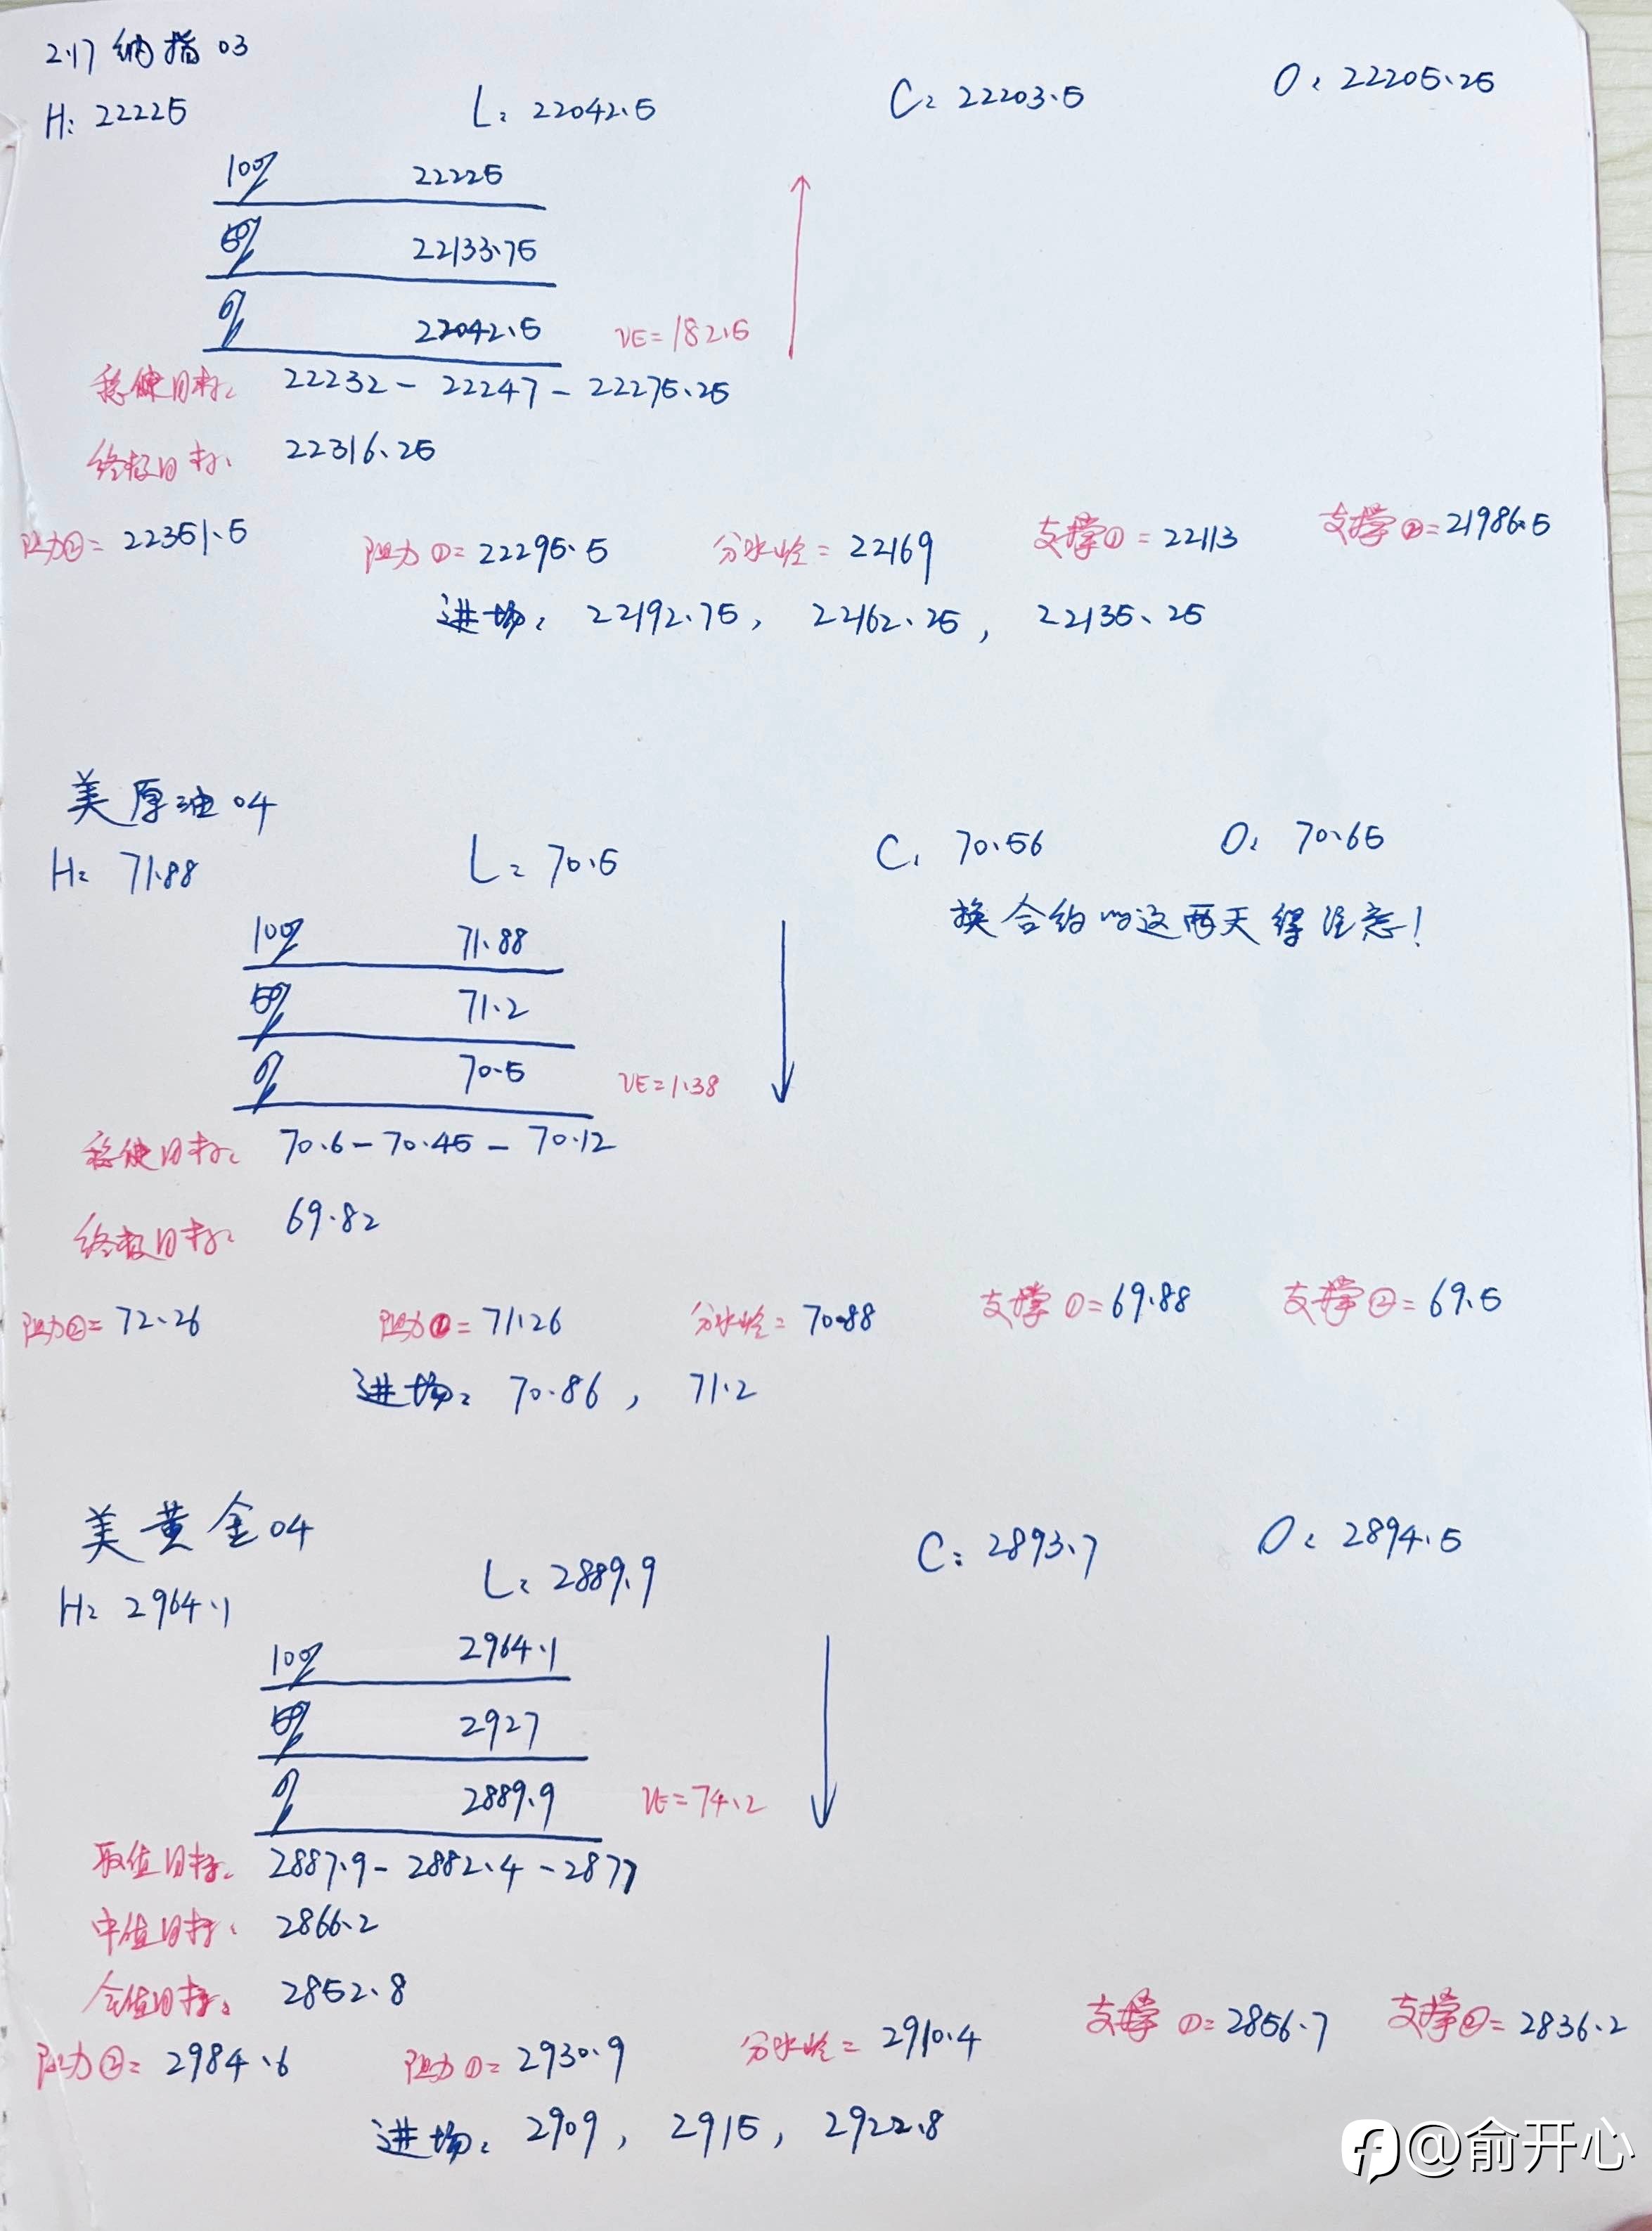 2.17 纳指 03
H: 22225 L: 22042.5 C: 22203.5 O: 22205.25
100% 22225
50% 22133.75
0% 22042.5 VE=182.5
稳健目标: 22232 - 22247 - 22275.25
终极目标: 22316.25
阻力②= 22351.5 阻力①= 22295.5 分水岭= 22169 支撑①= 22113 支撑②= 21986.5
进场: 22192.75, 22162.25, 22135.25
美原油 04
H: 71.88 L: 70.5 C: 70.56 O: 70.65
换合约的这两天得注意!
100% 71.88
50% 71.2
0% 70.5 VE=1.38
稳健目标: 70.6 - 70.45 - 70.12
终极目标: 69.82
阻力②= 72.26 阻力①= 71.26 分水岭= 70.88 支撑①= 69.88 支撑②= 69.5
进场: 70.86, 71.2
美黄金 04
H: 2964.1 L: 2889.9 C: 2893.7 O: 2894.5
100% 2964.1
50% 2927
0% 2889.9 VE=74.2
取值目标: 2887.9 - 2882.4 - 2877
中值目标: 2866.2
全值目标: 2852.8
阻力②= 2984.6 阻力①= 2930.9 分水岭= 2910.4 支撑①= 2856.7 支撑②= 2836.2
进场: 2909, 2915, 2922.8
@俞开心